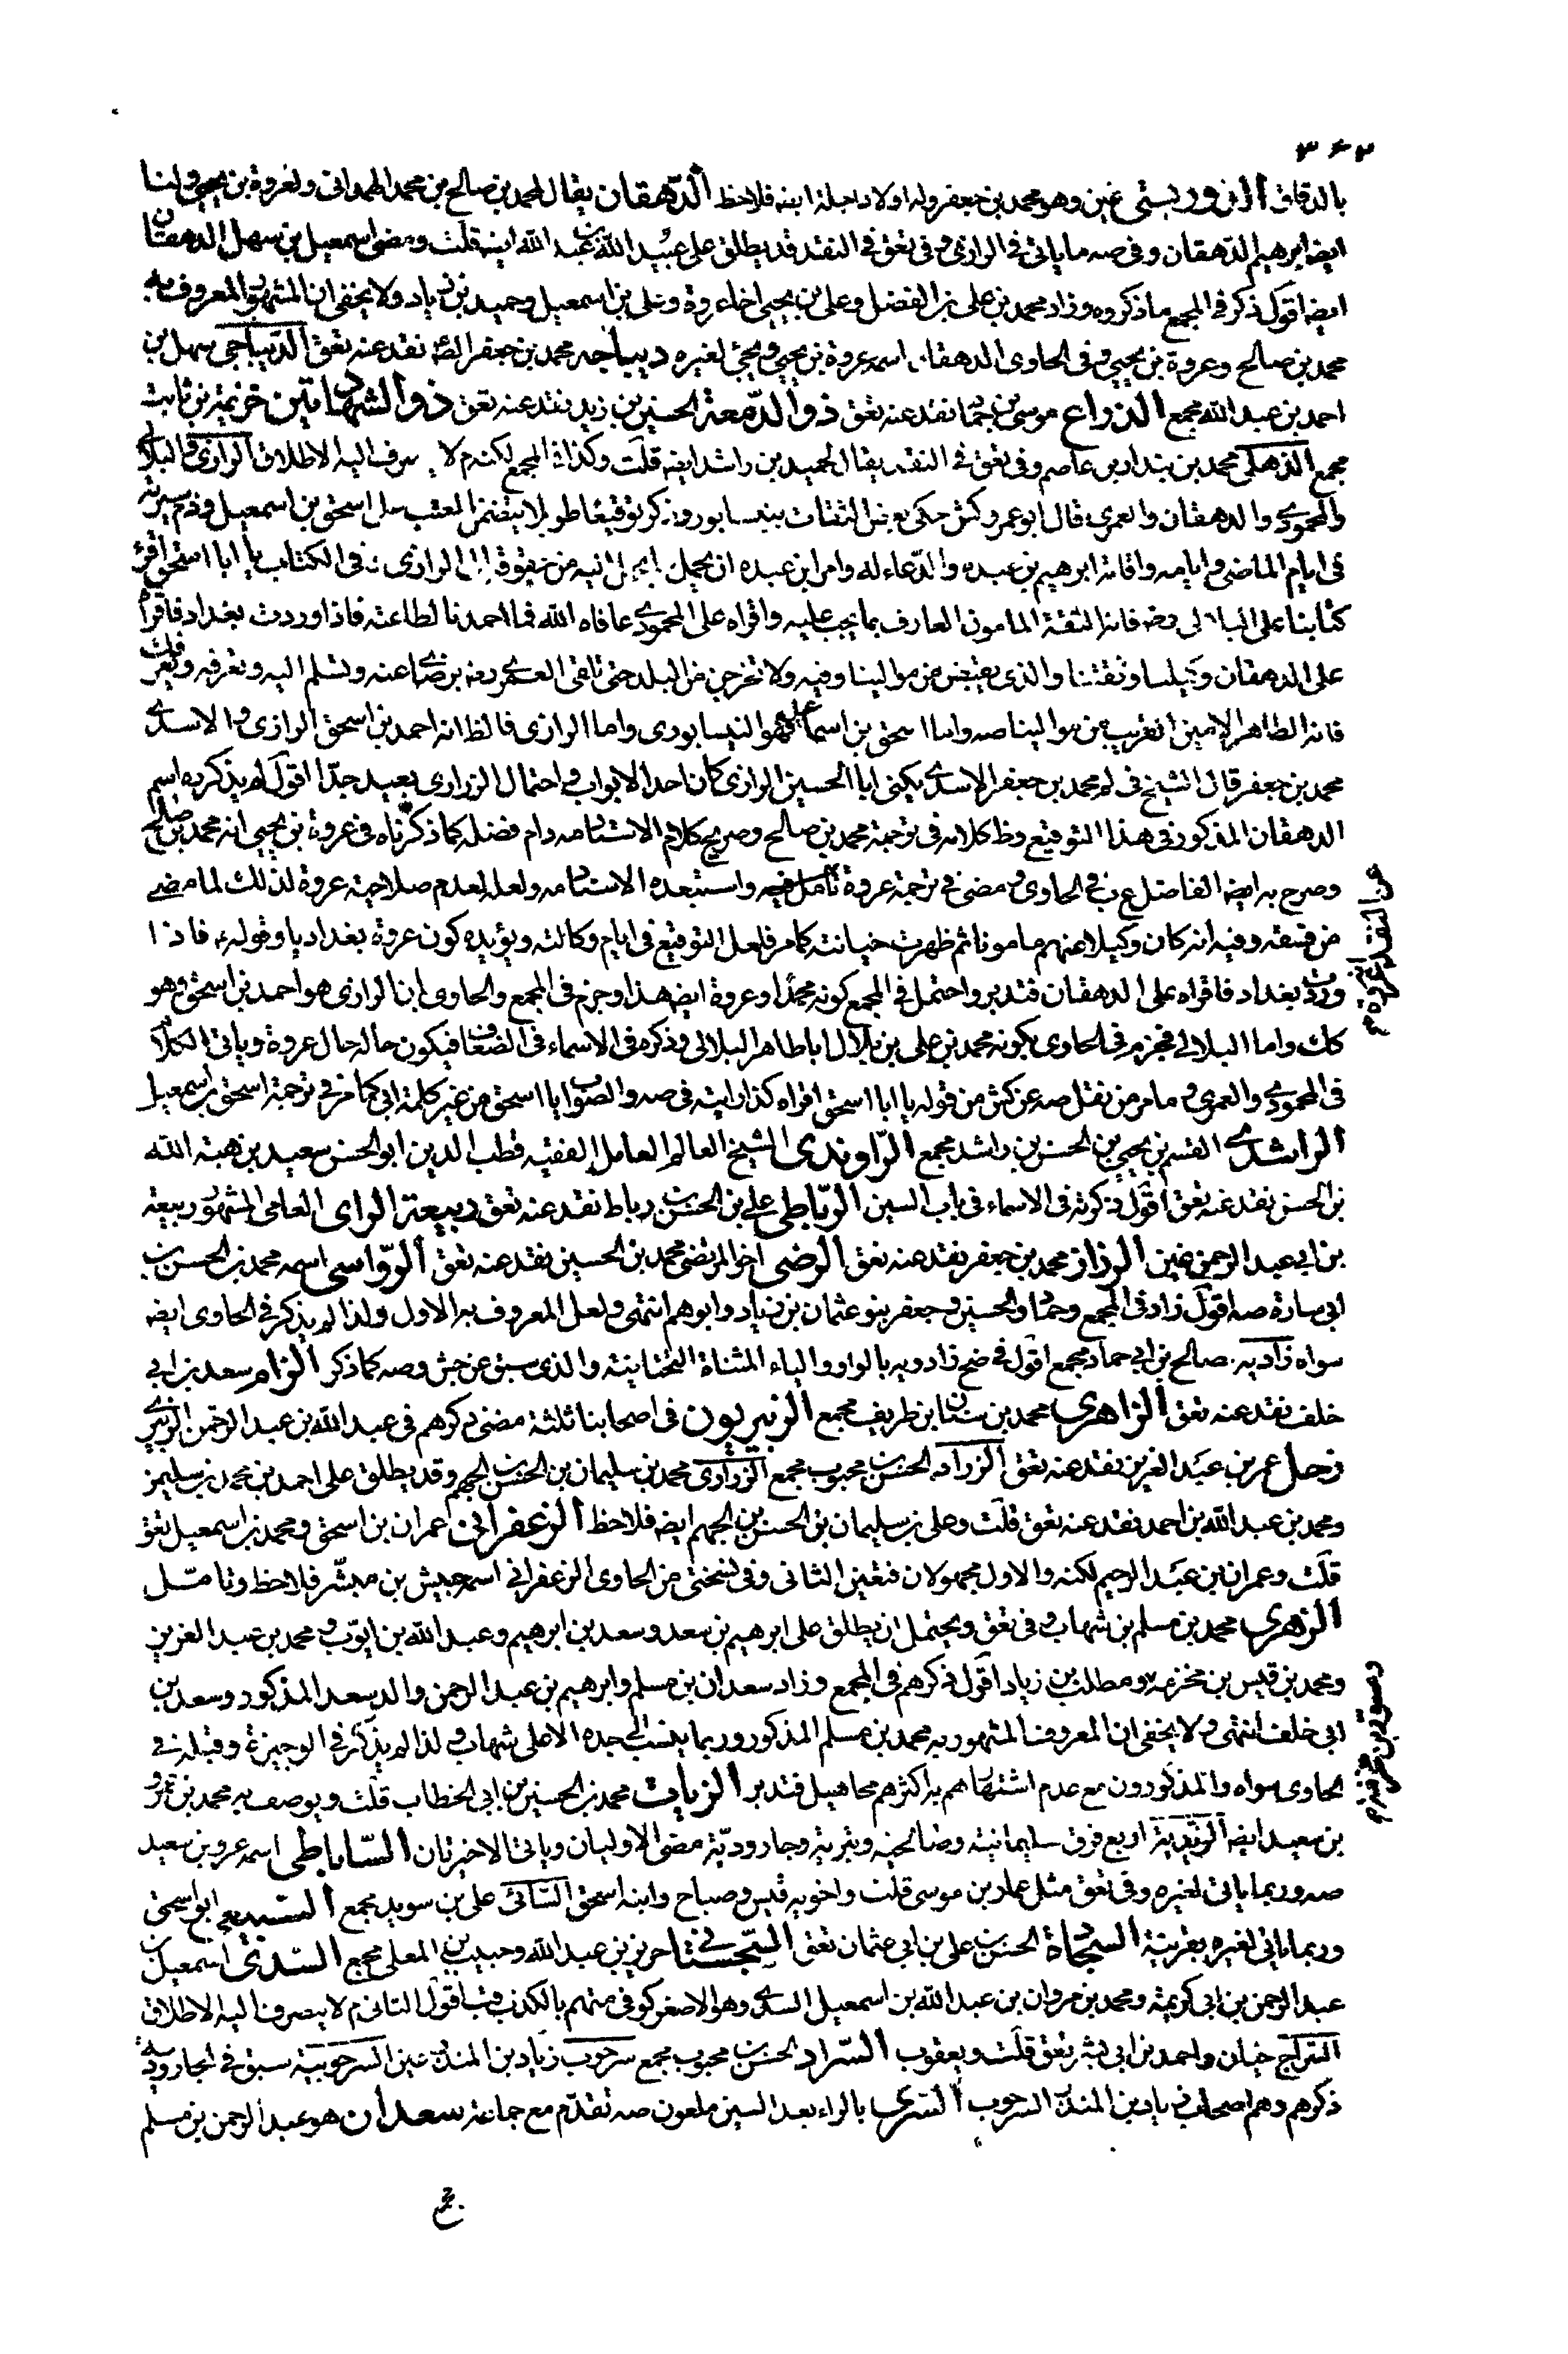 ٣٤٢
بالدقاق الدوريستى عين وهو محمد بن جعفر وله اولاد اجلة ابنه فلاحظ الدهقان يقال لمحمد بن صالح بن محمد الهمدانى ولعروة بن يحيى ولنا
ايضا ابرهيم الدهقان وفى صه ما ياتى فى الرازى وفى تعق فى النقد قد يطلق على عبيد الله بن عبد الله ايضه قلت ومضى اسمعيل بن سهل الدهقان
ايضا اقول ذكر فى المجمع ما ذكروه وزاد محمد بن على بن الفضل وعلى بن يحيى اخا عروة وعلى بن اسمعيل وحميد بن زياد ولا يخفى ان المشهور المعروف به
محمد بن صالح وعروة بن يحيى وفى الحاوى الدهقان اسمه عروة بن يحيى ويجئ لغيره ديباجه محمد بن جعفر الصه نقد عنه تعق الديباجى سهل بن
احمد بن عبد الله مجمع الذراع موسى بن حماد نقد عنه تعق ذو الدمعة الحسين بن زيد نقد عنه تعق ذو الشهادتين خزيمة بن ثابت
مجمع الذهلى محمد بن بندار بن عاصم وفى تعق فى النقد يقال لحميد بن راشد ايضه قلت وكذا فى المجمع لكنه م لا ينصرف اليه الاطلاق الرازى والبلالى
والمحمودى والدهقان والعمرى قال ابو عمرو كش حكى بعض الثقات بنيسابور وذكر توقيعا طويلا يتضمن العتب على اسحق بن اسمعيل وذم سيرته
فى ايام الماضى وايامه واقامة ابرهيم بن عبده والدعاء له وامر ابن عبده ان يحمل ما يحمل اليه من حقوقه الى الرازى وفى الكتاب يا ابا اسحق اقرء
كتابنا على البلالى رضه فانه الثقة المامون العارف بما يجب عليه واقراه على المحمودى عافاه الله فما احمدنا لطاعته فاذا وردت بغداد فاقراه
على الدهقان وكيلنا وثقتنا والذى يقبض من موالينا وفيه ولا تخرجن من البلد حتى تلقى العمرى رضه برضاى عنه وتسلم اليه وتعرفه ويعرفك
فانه الطاهر الامين القريب من موالينا صه واما اسحق بن اسماعيل فهو النيسابورى واما الرازى فالظ انه احمد بن اسحق الرازى والاسدى
محمد بن جعفر قال الشيخ فى لم محمد بن جعفر الاسدى يكنى ابا الحسين الرازى كان احد الابواب واحتمال الزرارى بعيد جدا اقول لم يذكر به اسم
الدهقان المذكور فى هذا التوقيع وظ كلامه فى ترجمة محمد بن صالح وصريح كلام الاستاد مه دام فضله كما ذكرناه فى عروة بن يحيى انه محمد بن صالح
وصرح به ايضه الفاضل ع ب فى الحاوى ومضى فى ترجمة عروة تامل فيه واستبعده الاستاد مه ولعله لعدم صلاحية عروة لذلك لما مضى
من فسقه وفيه انه كان وكيلا عنهم مامونا ثم ظهرت خيانته كما مر فلعل التوقيع فى ايام وكالته ويؤيده كون عروة بغداديا وقوله ع فاذا
وردت بغداد فاقراه على الدهقان فتدبر واحتمل فى المجمع كونه محمدا وعروة ايضه هذا وجزم فى المجمع والحاوى ان الرازى هو احمد بن اسحق وهو
كك واما البلالى فجزم فى الحاوى بكونه محمد بن على بن بلال ابا طاهر البلالى وذكره فى الاسماء فى الضعفاء فيكون حاله حال عروة وياتى الكلام
فى المحمودى والعمرى وما مر من نقل صه عن كش من قوله يا ابا اسحق اقراه كذا رايته فى صه والصواب يا اسحق من غير كلمة ابى كما مر فى ترجمة اسحق بن اسمعيل
الراشدى القسم بن يحيى بن الحسن بن راشد مجمع الراوندى الشيخ العالم العامل الفقيه قطب الدين ابو الحسن سعيد بن هبة الله
بن الحسن نقد عنه تعق اقول ذكرته فى الاسماء فى باب السين الرباطى على بن الحسن بن رباط نقد عنه تعق ربيعة الراى العامى المشهور ربيعة
بن ابى عبد الرحمن عين الرزاز محمد بن جعفر نقد عنه تعق الرضى اخو المرتضى محمد بن الحسين نقد عنه تعق الرواسى اسمه محمد بن الحسن بن
ابى سارة صه اقول زاد فى المجمع وحماد والحسين وجعفر بنو عثمان بن زياد وابوهم انتهى ولعل المعروف به الاول ولذا لم يذكر فى الحاوى ايضه
سواه زادبه صالح بن ابى حماد مجمع اقول فى ضح زادويه بالواو والياء المثناة التحتانية والذى سبق عن جش وصه كما ذكر الزام سعد بن ابى
خلف نقد عنه تعق الزاهرى محمد بن سنان ابن طريف مجمع الزبيريون فى اصحابنا ثلثة مضى ذكرهم فى عبد الله بن عبد الرحمن الزبيرى
زحل عمر بن عبد العزيز نقد عنه تعق الزراد الحسن بن محبوب مجمع الزرارى محمد بن سليمان بن الحسن بن الجهم وقد يطلق على احمد بن محمد بن سليمن
ومحمد بن عبد الله بن احمد نقد عنه تعق قلت وعلى بن سليمان بن الحسن بن الجهم ايضه فلاحظ الزعفرانى عمران بن اسحق ومحمد بن اسمعيل تعق
قلت وعمران بن عبد الرحيم لكنه والاول مجهولان فتعين الثانى وفى نسختى من الحاوى الزعفرانى اسمه حبيش بن مبشر فلاحظ وتامل
الزهرى محمد بن مسلم بن شهاب وفى تعق ويحتمل ان يطلق على ابرهيم بن سعد وسعد بن ابرهيم وعبد الله بن ايوب ومحمد بن عبد العزيز
ومحمد بن قيس بن مخرمه ومطلب بن زياد اقول ذكرهم فى المجمع وزاد سعدان بن مسلم وابرهيم بن عبد الرحمن والد سعد المذكور وسعد بن
ابى خلف انتهى ولا يخفى ان المعروف المشهور به محمد بن مسلم المذكور وربما ينسب الى جده الاعلى شهاب ولذا لم يذكر فى الوجيزة وقبله فى
الحاوى سواه والمذكورون مع عدم اشتهارهم به اكثرهم مجاهيل فتدبر الزيات محمد بن الحسين بن ابى الخطاب قلت ويوصف به محمد بن عمرو
بن سعيد ايضه الزيدية اربع فرق سليمانية وصالحيه وبترية وجارودية مضى الاوليان وياتى الاخيرتان الساباطى اسمه عمرو بن سعيد
صه وربما ياتى لغيره وفى تعق مثل عمار بن موسى قلت واخويه قيس وصباح وابنه اسحق السائى على بن سويد مجمع السبيعى ابو اسحق
وربما ياتى لغيره بقرينة السجادة الحسن بن على بن ابى عثمان تعق السجستانى حريز بن عبد الله وحبيب بن المعلى مجمع السدى اسمعيل بن
عبد الرحمن بن ابى كريمة ومحمد بن مروان بن عبد الله بن اسمعيل السدى وهو الاصغر كوفى متهم بالكذب وب اقول الثانى م لا ينصرف اليه الاطلاق
السراج حيان واحمد بن ابى بشر تعق قلت ويعقوب السراد الحسن بن محبوب مجمع سرحوب زياد بن المنذر عين السرحوبية سبق فى الجارودية
ذكرهم وهم اصحاب زياد بن المنذر السرحوب السرى بالراء بعد السين ملعون صه تقدم مع جماعة سعدان هو عبد الرحمن بن مسلم